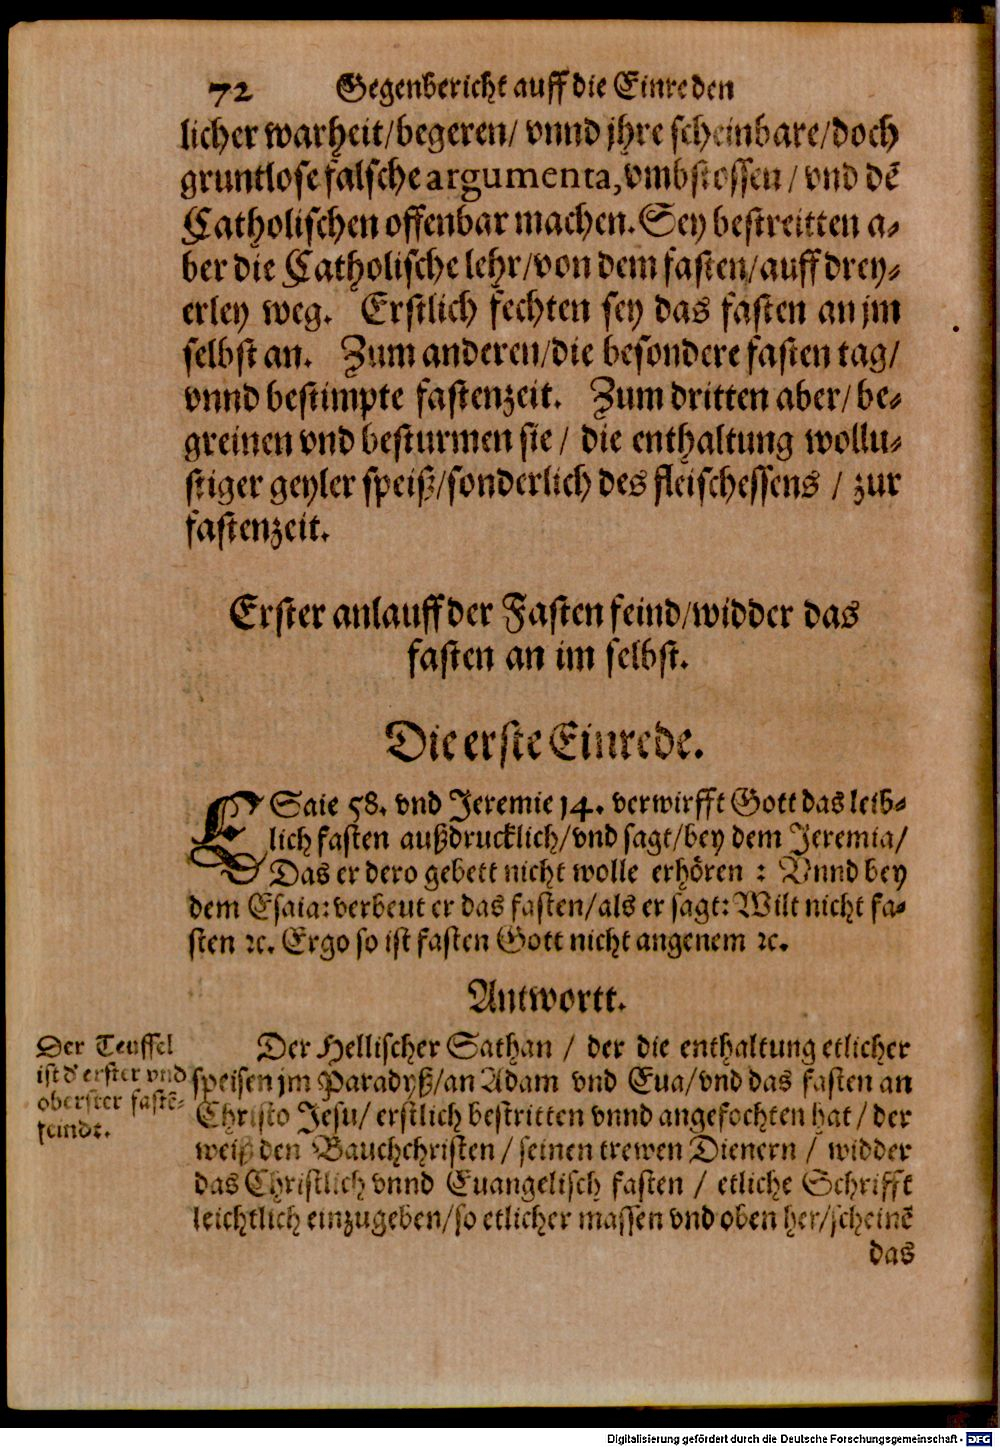 72 Gegenbericht auff die Einreden
licher warheit/begeren/ vnnd jhre scheinbare/doch
gruntlose falsche argumenta, vmbstossen / vnd dẽ
Catholischen offenbar machen. Sey bestreitten a-
ber die Catholische lehr/von dem fasten/auff drey-
erley weg. Erstlich fechten sey das fasten an jm
selbst an. Zum anderen/die besondere fasten tag/
vnnd bestimpte fastenzeit. Zum dritten aber/ be-
greinen vnd besturmen sie / die enthaltung wollu-
stiger geyler speiß/sonderlich des fleischessens / zur
fastenzeit.
Erster anlauff der Fasten feind/widder das
fasten an im selbst.
Die erste Einrede.
ESaie 58. vnd Jeremie 14. verwirfft Gott das leib-
lich fasten außdrucklich/vnd sagt/bey dem Jeremia/
Das er dero gebett nicht wolle erhören : Vnnd bey
dem Esaia: verbeut er das fasten/als er sagt: Wilt nicht fa-
sten ꝛc. Ergo so ist fasten Gott nicht angenem ꝛc.
Antwortt.
Der Teuffel
ist d' erster vnd
oberster fastẽ-
feindt.
Der Hellischer Sathan / der die enthaltung etlicher
speisen jm Paradyß/an Adam vnd Eua/vnd das fasten an
Christo Jesu/ erstlich bestritten vnnd angefochten hat / der
weiß den Bauchchristen / seinen trewen Dienern / widder
das Christlich vnnd Euangelisch fasten / etliche Schrifft
leichtlich einzugeben/so etlicher massen vnd oben her/scheinẽ
das
Digitalisierung gefördert durch die Deutsche Forschungsgemeinschaft - DFG